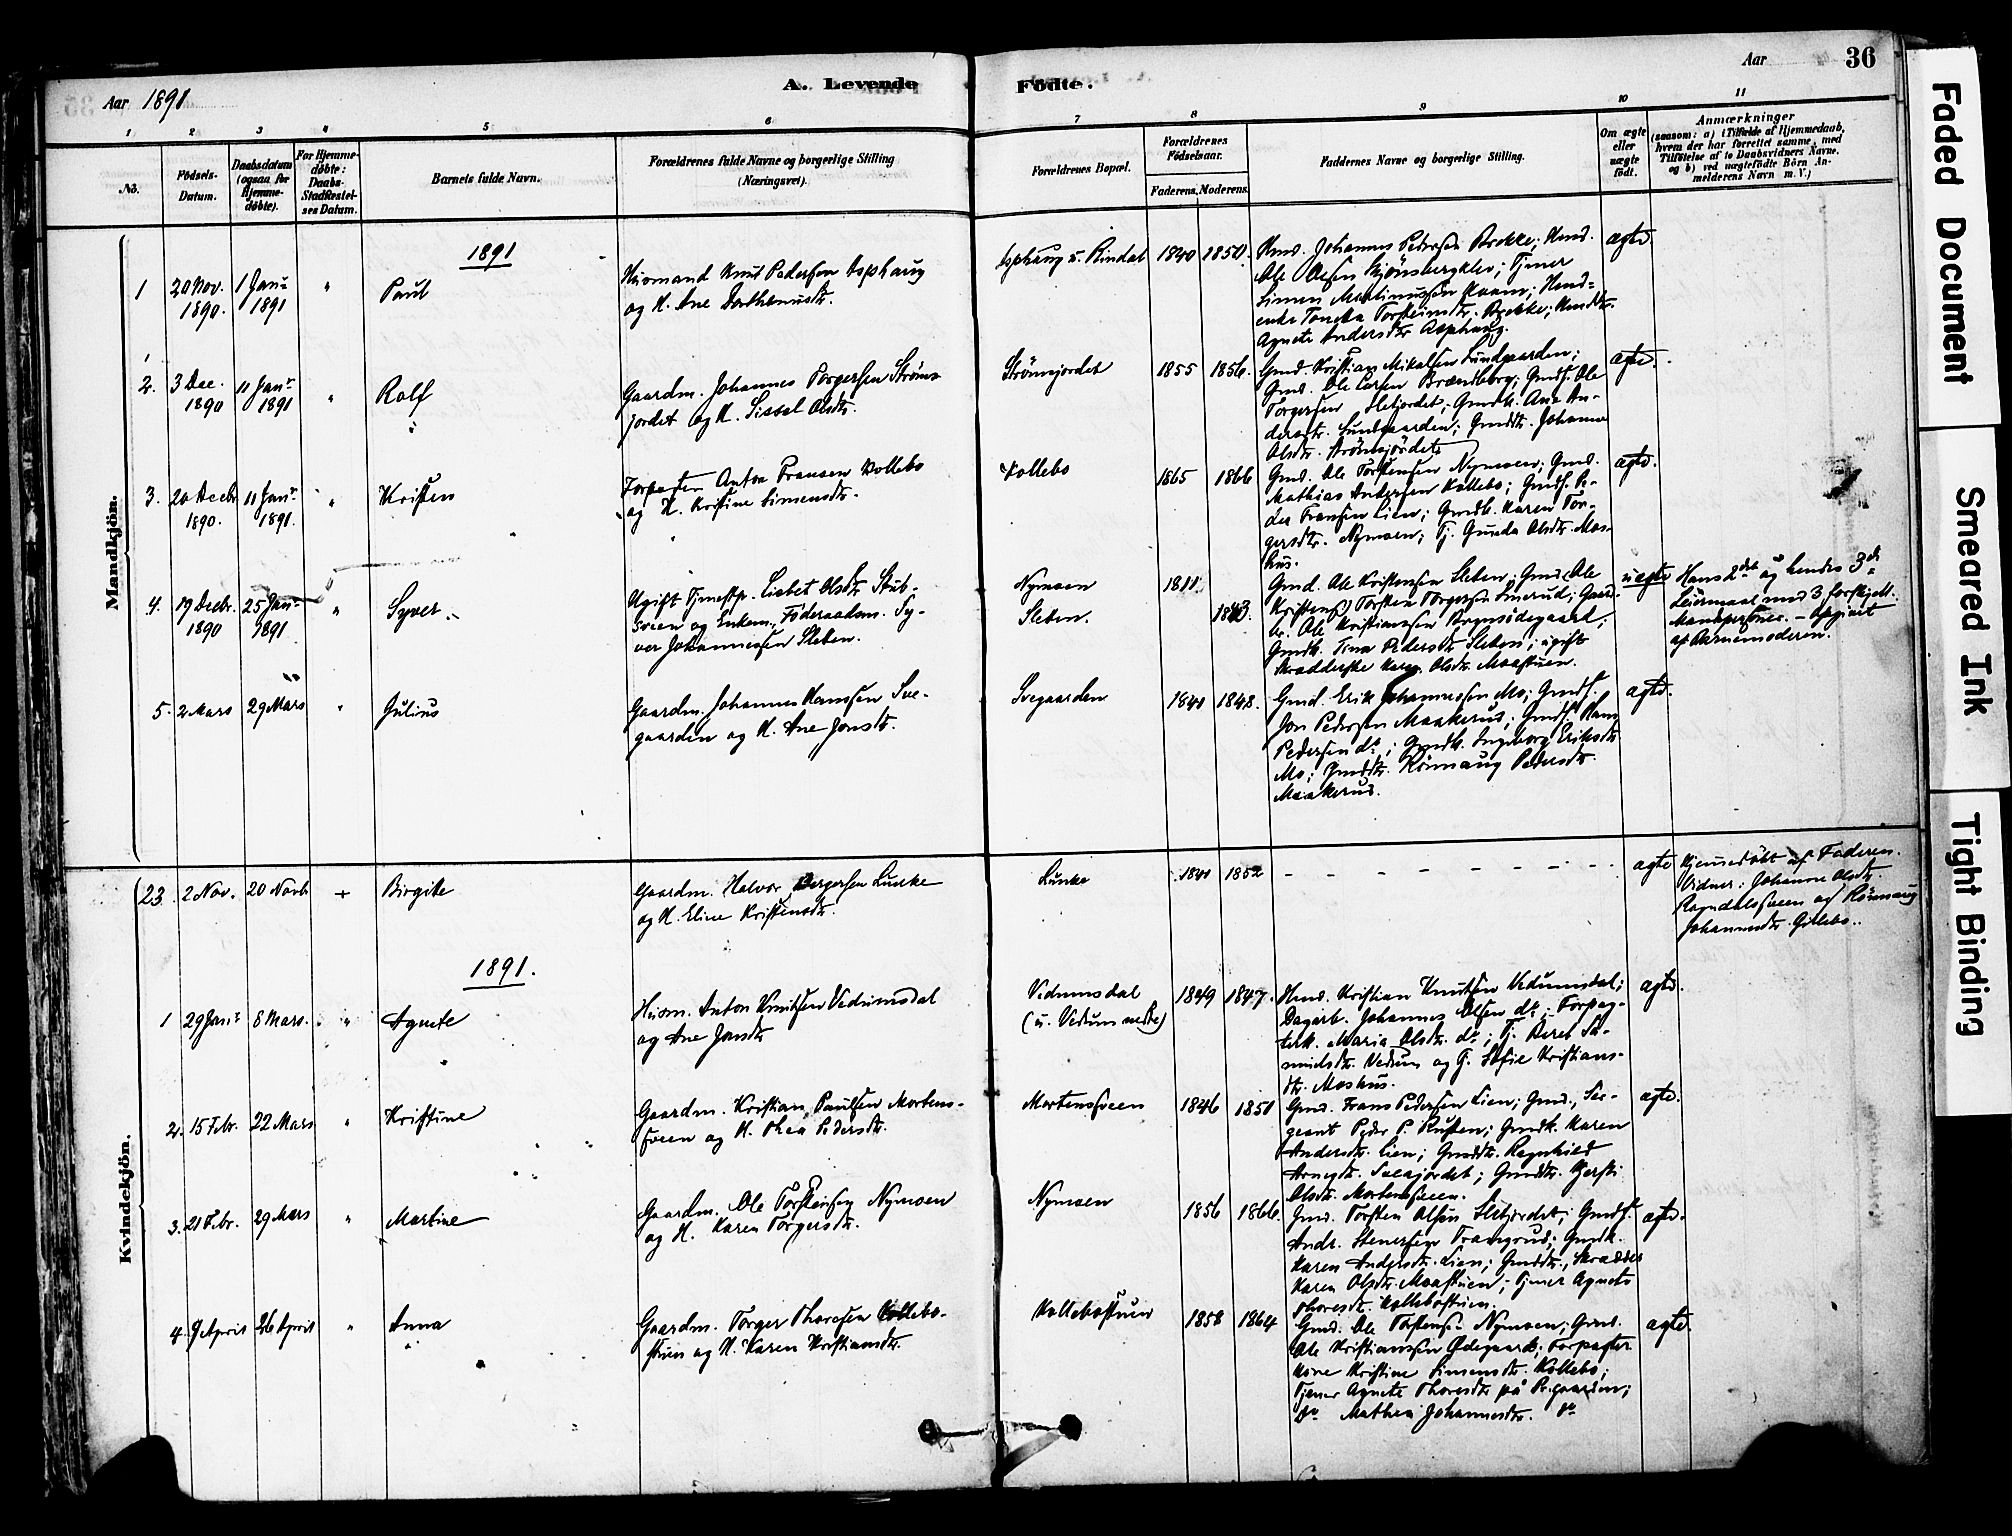 Aar 1891
A. Levende
Födte.
Aar
36
1 2 3 4 5 6 7 8 9 10 11
No.
Födsels-
Datum.
Daabsdatum
(ogsaa for
Hjemme-
döbte).
For Hjemme-
döbte:
Daabs-
Stadfæstel-
ses Datum.
Barnets fulde Navn.
Forældrenes fulde Navne og borgerlige Stilling
(Næringsvei).
Forældrenes Bopæl.
Forældrenes
Födselsaar.
Faderens. Moderens.
Faddernes Navne og borgerlige Stilling.
Om ægte
eller
uægte
födt.
Anmærkninger
(saasom: a) i Tilfælde af Hjemmedaab,
hvem der har forrettet samme, med
Tilföielse af to Daabsvidners Navne,
og b) ved uægtefödte Börn An-
melderens Navn m. V.)
Mandkjön.
1891
1 20 Nov. 1890. 1 Janu. 1891 " Paul
Husmand Knut Pedersen Asphaug
og H. Ane
Asphaug u. Rindal 1840 1850.
Hmd. Johannes Pedersen Brekke; Hmd.
Ole Olsen ; Tjener
Simen Martinussen
Torsteinsdtr. Brekke;
Agnete Andersdtr Asphaug.
ægte.
2. 3 Dec. 1890 11 Janr. 1891 " Rolf
Gaardm. Johannes Torgersen Ströms-
jordet og H. Sisbel Olsdtr.
Strömsjordet 1855 1856.
Gmd. Kristian Mikalsen Lundgaarden;
Gmd. Ole Larsen Brændeborg; Gmds. Ole
Torgersen Sletjordet; Gmdk. Ane An-
dersdtr. Lundgaarden; Gmddtr. Johanne
Olsdtr. Strömsjördet
ægte.
3. 20 Decbr 1890. 11 Janr. 1891. " Kristen
Forpagter Anton Fransen Kollebo
og H. Kristine Simensdtr.
Kollebo 1865 1866
Gmd. Ole Torstensen Nymoen; Gmd.
Mathias Andersen Kollebo; Gmds. Pe-
der Fransen Lien; Gmdk. Karen Tor-
gersdtr. Nymoen; Tj. Gunda Olsdtr. Mos-
hus.
ægte.
4. 19 Decbr. 1890 25 Janr. 1891 " Syver
Ugift Tjenestp. Lisbet Olsdtr Stub-
sveen og Enkem., Föderaadsm. Sy-
ver Johannessen Sleben.
Nymoen
Sleben.
1811
1843.
Gmd. Ole Kristensen Sleben; Gmd. Ole
Kristens, Torsten Torgersen ; Gaard-
br. Ole Kristiansen Brynsödegaard;
Gmdk. Tina Pedersdtr Sleben; ugift
Karen Olsdtr. Moastuen.
uægte
Hans 2det og hendes 3de
Leiermaal med 3 forskjell.
Mandspersoner. - Opgivet
af Barnemoderen.
5. 2 Mars 29 Mars " Julius
Gaardm. Johannes Hanssen Sve-
gaarden og H. Ane Jonsdtr.
Svegaarden 1841 1848.
Gmd. Erik Johannessen Mo; Gmds.
Jon Pedersen Maakerud; Gmds. Hans
Pedersen do; Gmdk. Ingeborg Eriksdtr
Mo; Gmddtr. Rönnaug Pedersdtr.
Maakerud.
ægte.
Kvindekjön.
23. 2 Nov. 20 Novb + Birgite
Gaardm. Halvor Borgersen Lunke
og H. Eline Kristensdtr.
Lunke 1841 1852
- - - - - - - -
ægte
Hjemmedöbt af Faderen.
Vidner: Johanne Olsdtr.
Rognddlsveen og Rönnaug
Johannesdtr. Gillebo..
1891.
1 29 Janr. 8 Mars. " Agnete
Husm. Anton Knutsen Vedumsdal
og Ane Jonsdtr
Vedumsdal
(u. Vedum nedre)
1849 1847.
Hmd. Kristian Knutsen Vedumsdal;
Dagarb. Johannes Olsen do; Forpag-
terk. Maria Olsdtr. do; Tj. Beret Sa-
muelsdtr. Vedum og G. Sofie Kristians-
dtr. Moshus.
ægte.
2. 15 Febr. 22 Mars " Kristine
Gaardm. Kristian Paulsen Mortens-
sveen og H. Thea Pedersdtr.
Mortenssveen 1846 1851
Gmd. Frans Pedersen Lien; Gmd., Ser-
geant Peder P. Rusten; Gmdk. Karen
Andersdtr. Lien; Gmddtr. Ragnhild
Arnesdtr. Sveajordet; Gmddtr. Kjersti
Olsdtr. Mortenssveen.
ægte.
3. 21 Febr. 29 Mars " Martine
Gaardm. Ole Torstensen Nymoen
og H. Karen Torgersdtr.
Nymoen 1856 1866.
Gmd. Torsten Olsen Sletjordet; Gmds.
Andr. Stenersen Tramgrud; Gmdk.
Karen Andersdtr. Lien; Gmddtr., Skrædder
Karen Olsdtr. Moastuen; Tjener Agnete
Thoresdtr. Kollebostuen.
ægte.
4. 9 April 26 April " Anna
Gaardm. Torger Thoresen Kollebo-
stuen og H. Karen Kristiansdtr.
Kollebostuen 1858 1864
Gmd. Ole Torstensen Nymoen; Gmd.
Ole Kristianssen Ødegaard; Forpagter
Kone Kristine Simensdtr. Kollebo;
Tjener Agnete Thoresdtr på Pr.gaarden;
do Mathea Johannesdtr. do
ægte.
Faded Document
Smeared Ink
Tight Binding